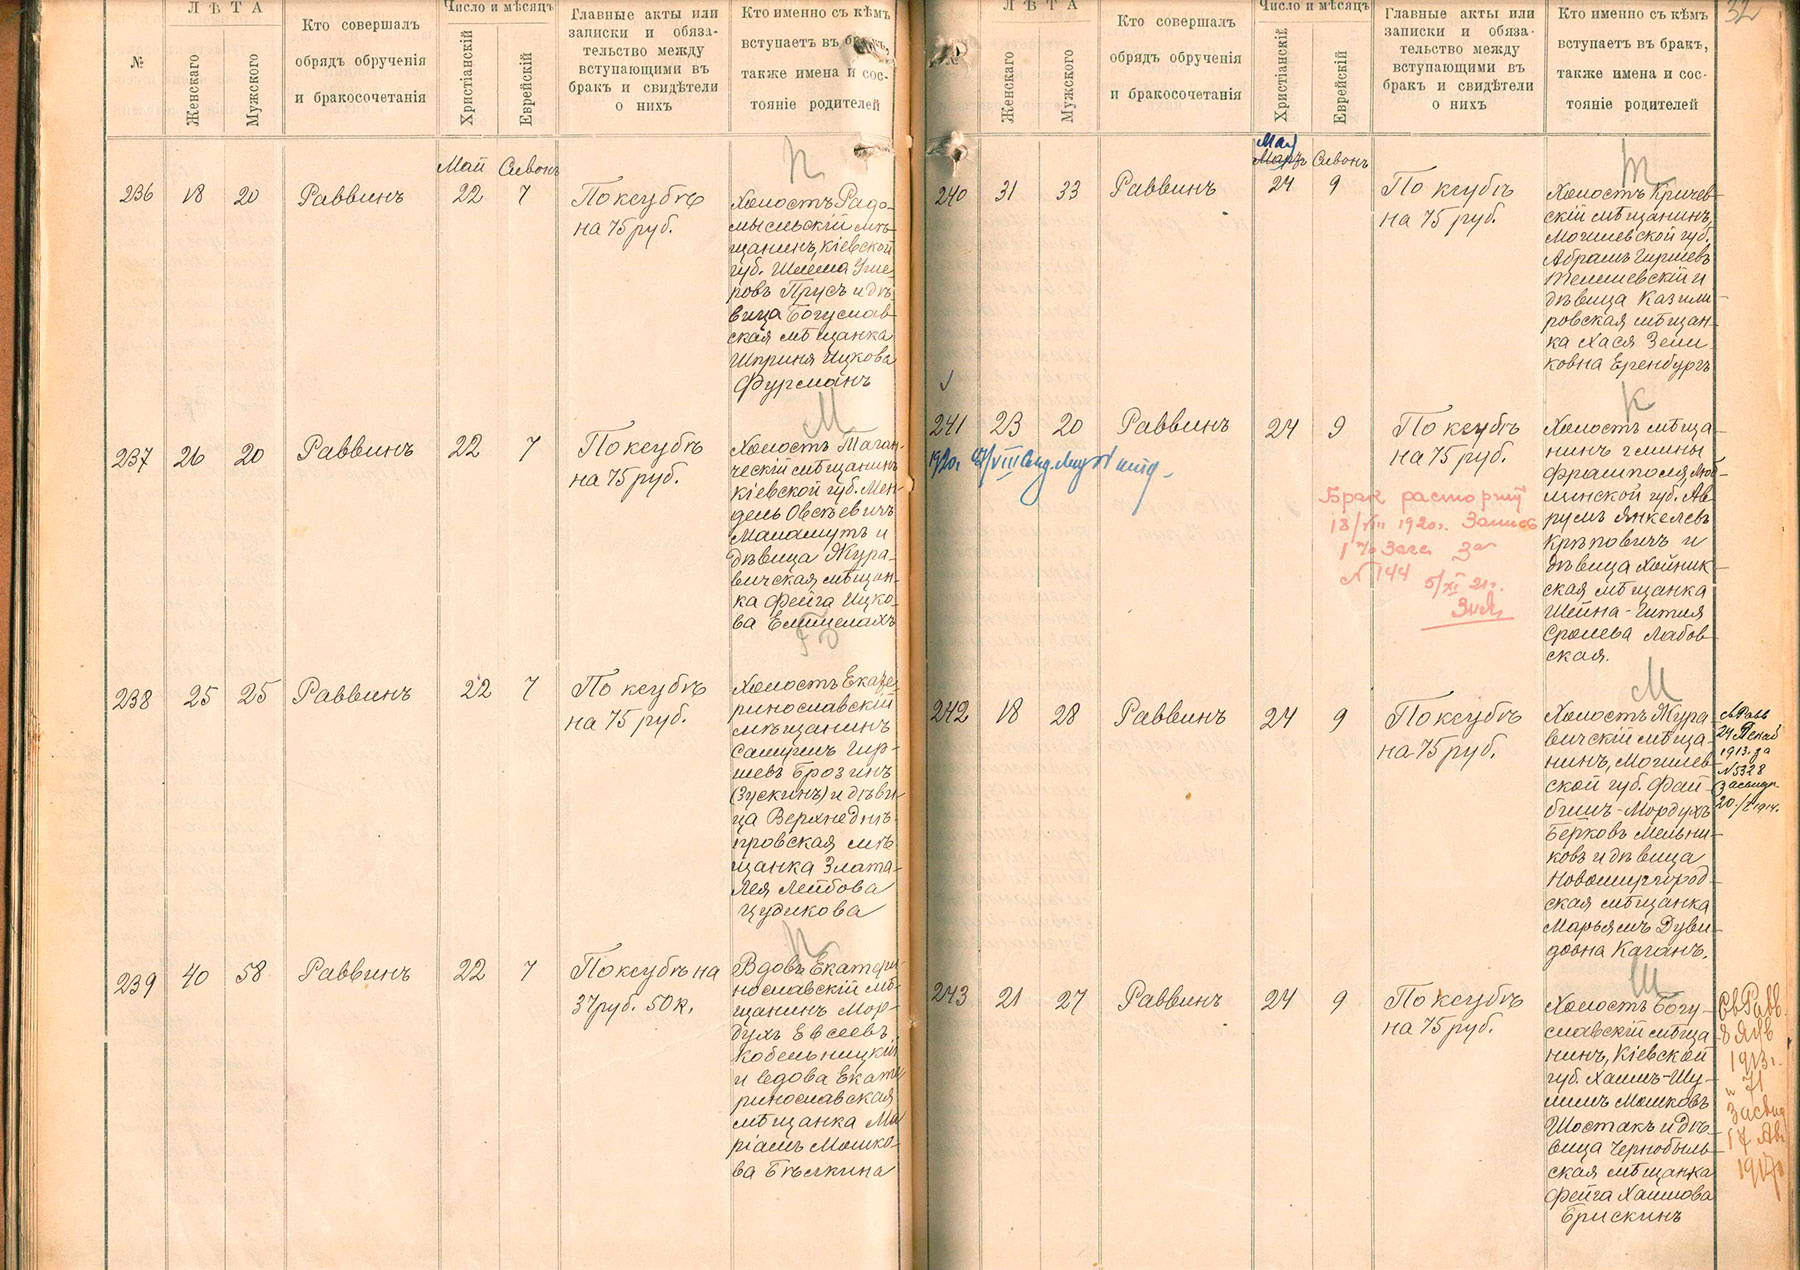 ЛѢТА
Число и мѣсяцъ
№
Женскаго
Мужского
Кто совершалъ
обрядъ обрученія
и бракосочетанія
Христіанскій
Еврейскій
Главные акты или
записки и обяза-
тельство между
вступающими въ
бракъ и свидѣтели
о нихъ
Кто именно съ кѣмъ
вступаетъ въ бракъ,
также имена и сос-
тояніе родителей
П
Май Сивонъ
236 18 20 Раввинъ 22 7 По ксубѣ
на 75 руб.
Холостъ Радо-
мысльскій мѣ-
щанинъ, кіевской
губ. Шлема Уше-
ровъ Прусъ и дѣ-
вица Богуслав-
ская мѣщанка
Шприня Ицкова
Фурманъ
М
237 26 20 Раввинъ 22 7 По ксубѣ
на 75 руб.
Холостъ Таган-
ческій мѣщанинъ
кіевской губ. Мен-
дель Овсѣевичъ
Маламутъ и
дѣвица Жура-
вичская мѣщан-
ка Фейга Ицко-
ва Елимелахъ
Б
238 25 25 Раввинъ 22 7 По ксубѣ
на 75 руб.
Холостъ Екате-
ринославскій
мѣщанинъ
Самуилъ Гир-
шевъ Брозинъ
(Зускинъ) и дѣви-
ца Верхнеднѣ-
провская мѣ-
щанка Злата-
Лея Лейбова
Цудикова
239 40 58 Раввинъ 22 7 По ксубѣ на
37 руб. 50 к.
Вдовъ Екатери-
нославскій мѣ-
щанинъ Мор-
духъ Евсеевъ
Кобельницкій
и вдова Екате-
ринославская
мѣщанка Ма-
ріамъ Мошко-
ва Бѣлкина
32
ЛѢТА
Число и мѣсяцъ
№
Женскаго
Мужского
Кто совершалъ
обрядъ обрученія
и бракосочетанія
Христіанскій
Еврейскій
Главные акты или
записки и обяза-
тельство между
вступающими въ
бракъ и свидѣтели
о нихъ
Кто именно съ кѣмъ
вступаетъ въ бракъ,
также имена и сос-
тояніе родителей
Май
Мартъ Сивонъ
Т
240 31 33 Раввинъ 24 9 По ксубѣ
на 75 руб.
Холостъ Кричев-
скій мѣщанинъ,
Могилевской губ.
Абрамъ Гиршевъ
Телишевскій и
дѣвица Казими-
ровская мѣщан-
ка Хася Зели-
ковна Еренбургъ
К
241 23 20 Раввинъ 24 9 По ксубѣ
на 75 руб.
1920г.
Бракъ расторгнут
18/VIII 1920г. Запись
1го Загс за
N 144 5/XI 21г.
Холостъ мѣща-
нинъ гмины
Фрамполя, Люб-
линской губ. Ав-
румъ Янкелевъ
Крѣповичъ и
дѣвица Хойник-
ская мѣщанка
Шейна-Гитля
Сролева Лабов-
ская.
М
242 18 28 Раввинъ 24 9 По ксубѣ
на 75 руб.
Холостъ Жура-
вичскій мѣща-
нинъ, Могилев-
ской губ. Фай-
бишъ-Мордухъ
Берковъ Мельни-
ковъ и дѣвица
Новомиргород-
ская мѣщанка
Марьямъ Дуви-
довна Каганъ.
24 Декаб
1913г. за
N 5328
засвид
20/I 1914.
Ш
243 21 27 Раввинъ 24 9 По ксубѣ
на 75 руб.
Холостъ Богу-
славскій мѣща-
нинъ, Кіевской
губ. Хаимъ-Шу-
лимъ Мошковъ
Шостакъ и дѣ-
вица Чернобыль-
ская мѣщанка
Фейга Хаимова
Брискинъ
Св Равв.
8 Янв
1913г.
N 71
засвид
17 Ав
1917г